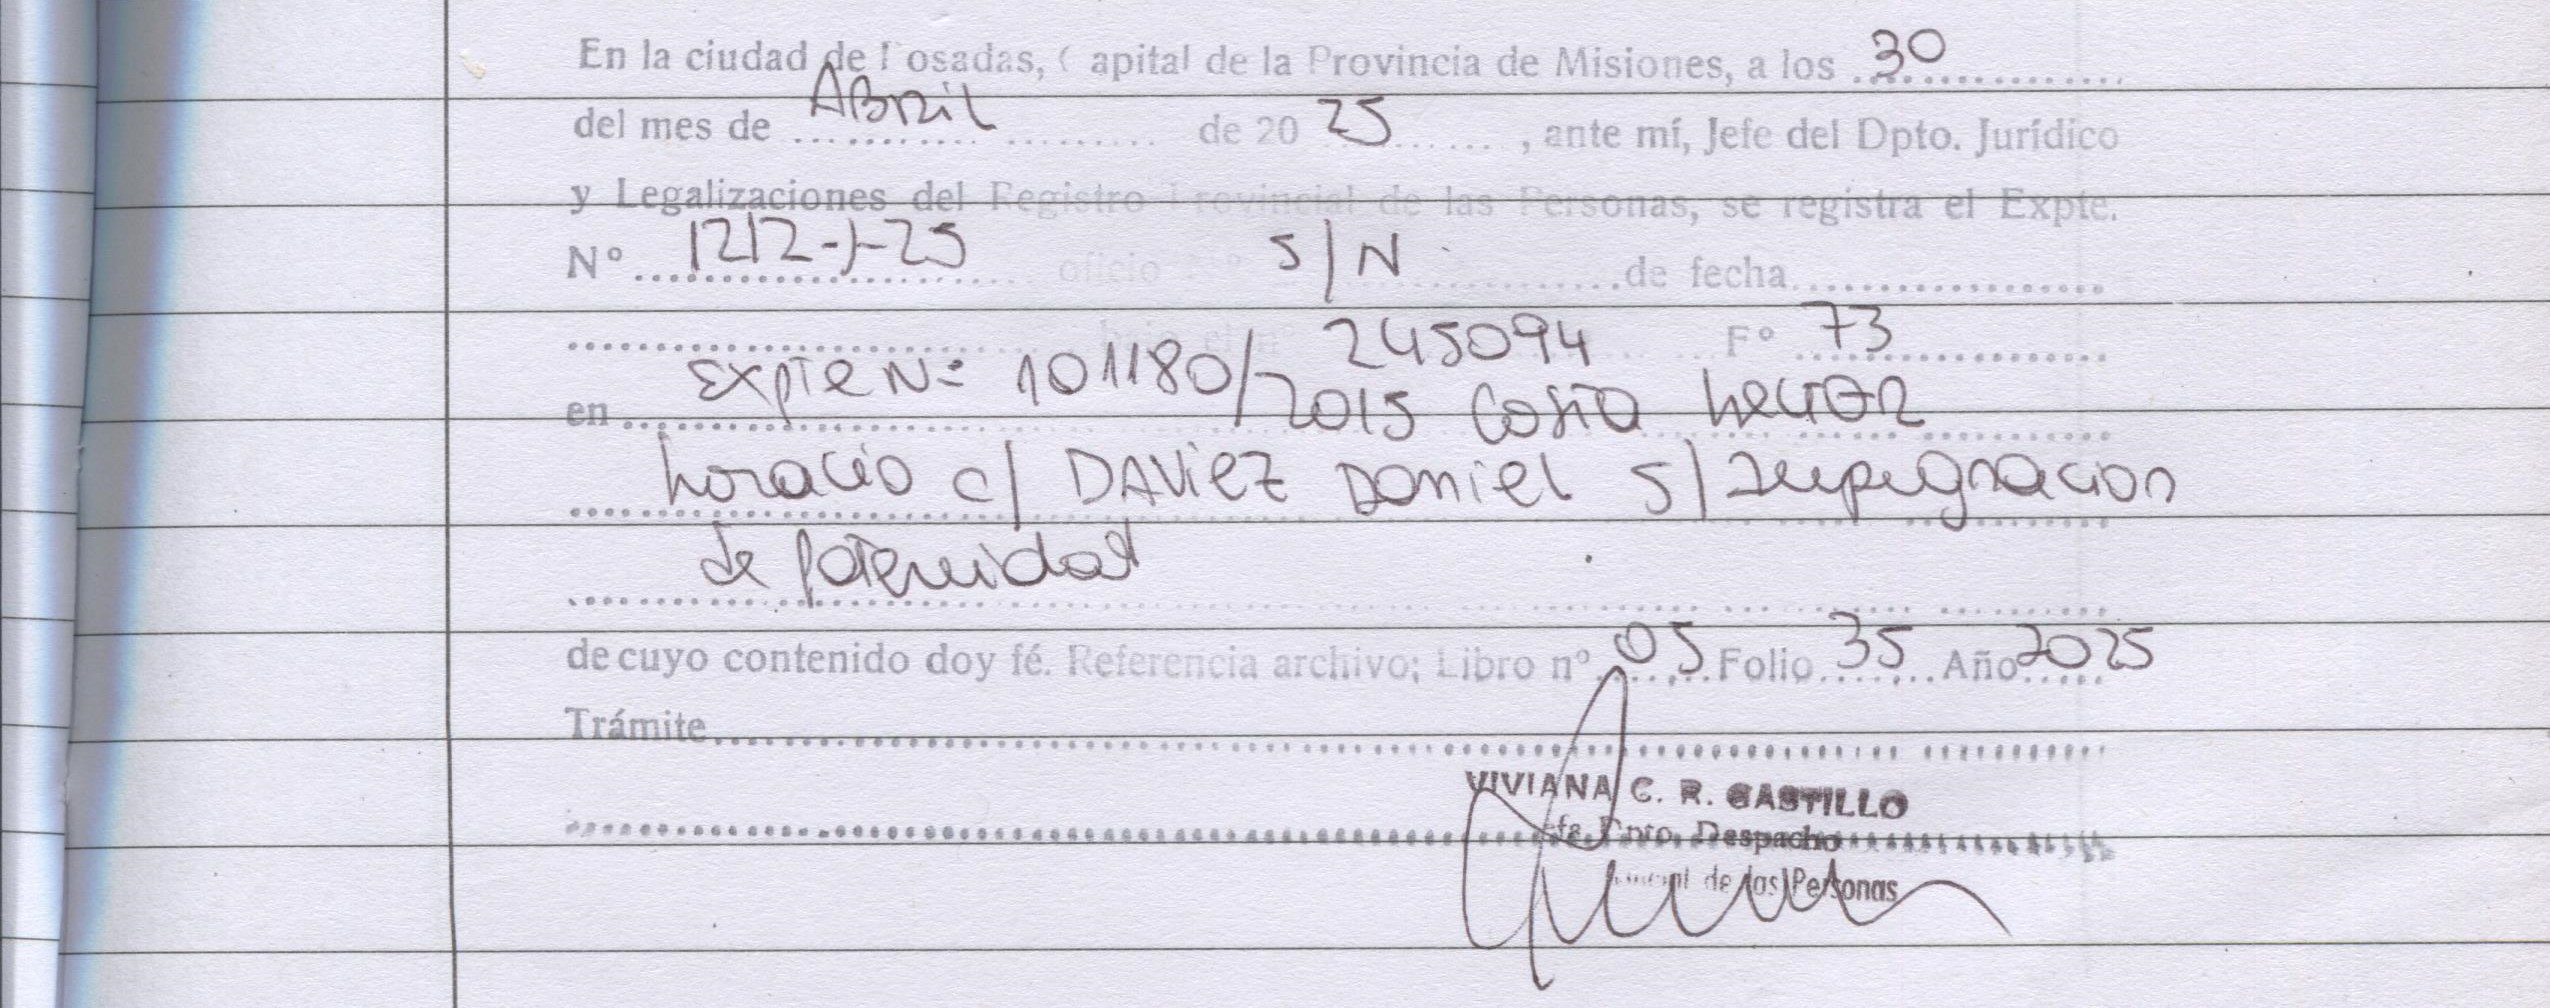 En la ciudad de Posadas, Capital de la Provincia de Misiones, a los 30
del mes de ABRil de 20 25, ante mí, Jefe del Dpto. Jurídico
y Legalizaciones del Registro Provincial de las Personas, se registra el Expte.
Nº 1212-J-25 oficio Nº S/N de fecha
bajo el nº 245094 Fº 73
en Expte Nº 101180/2015 Costa hector
horacio c/ DAVIEZ DANiel S/ Impugnacion
de paternidad
de cuyo contenido doy fé. Referencia archivo; Libro nº 05 Folio 35 Año 2025
Trámite
VIVIANA C. R. CASTILLO
Dpto. Despacho
de las Personas